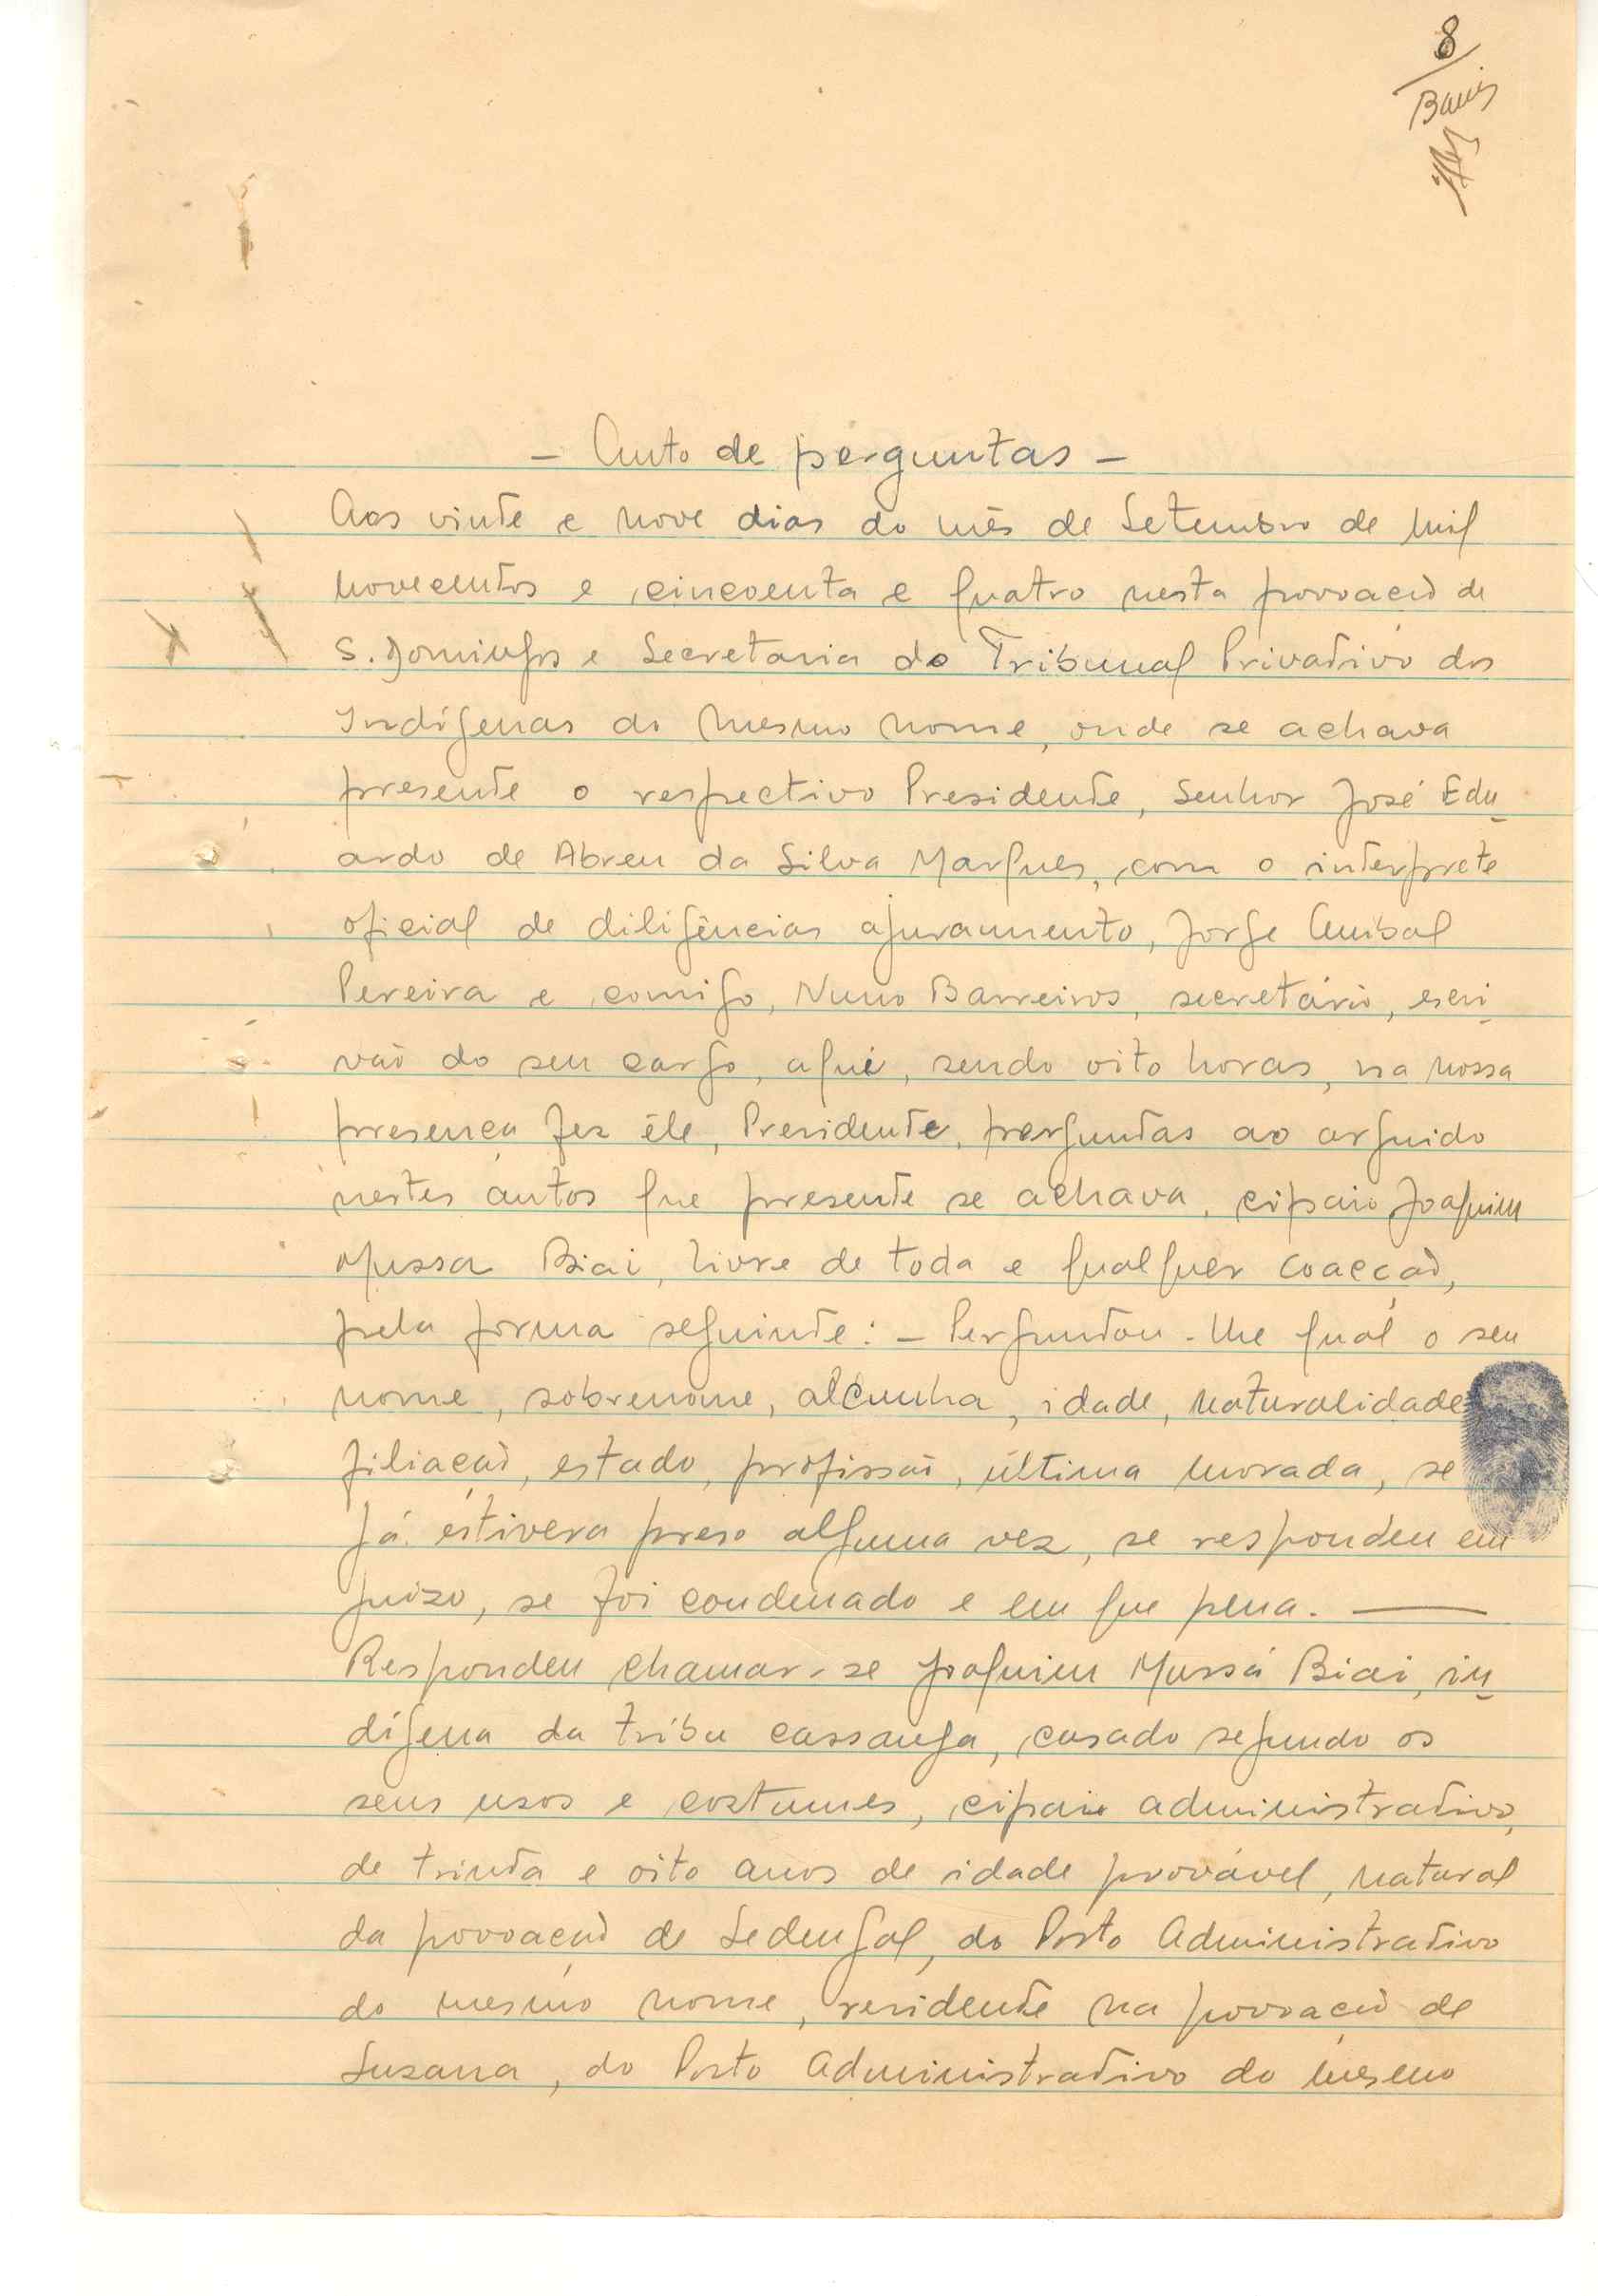 8
- Auto de perguntas -
Aos vinte e nove dias do mês de Setembro de mil
novecentos e cincoenta e quatro nesta povoação de
S. Domingos e Secretaria do Tribunal Privativo dos
Indígenas do mesmo nome, onde se achava
presente o respectivo Presidente, Senhor José Edu-
ardo de Abreu da Silva Marques, com o interprete
oficial de diligências ajuramento, Jorge Anibal
Pereira e comigo, Nuno Barreiros, secretário, escri-
vão do seu cargo, aqui, sendo oito horas, na nossa
presença fez êle, Presidente, perguntas ao arguido
nestes autos que presente se achava, cipaio Joaquim
Mussa Biai, livre de toda e qualquer coacção,
pela forma seguinte: - Perguntou-lhe qual o seu
nome, sobrenome, alcunha, idade, naturalidade
filiação, estado, profissão, última morada, se
já estivera preso alguma vez, se respondeu em
juizo, se foi condenado e em que pena. ———
Respondeu chamar-se Joaquim Mussá Biai, in-
dígena da tribu cassanga, casado segundo os
seus usos e costumes, cipaio administrativo,
de trinta e oito anos de idade provável, natural
da povoação de Sedengal, do Posto Administrativo
do mesmo nome, residente na povoação de
Suzana, do Posto Administrativo do mesmo